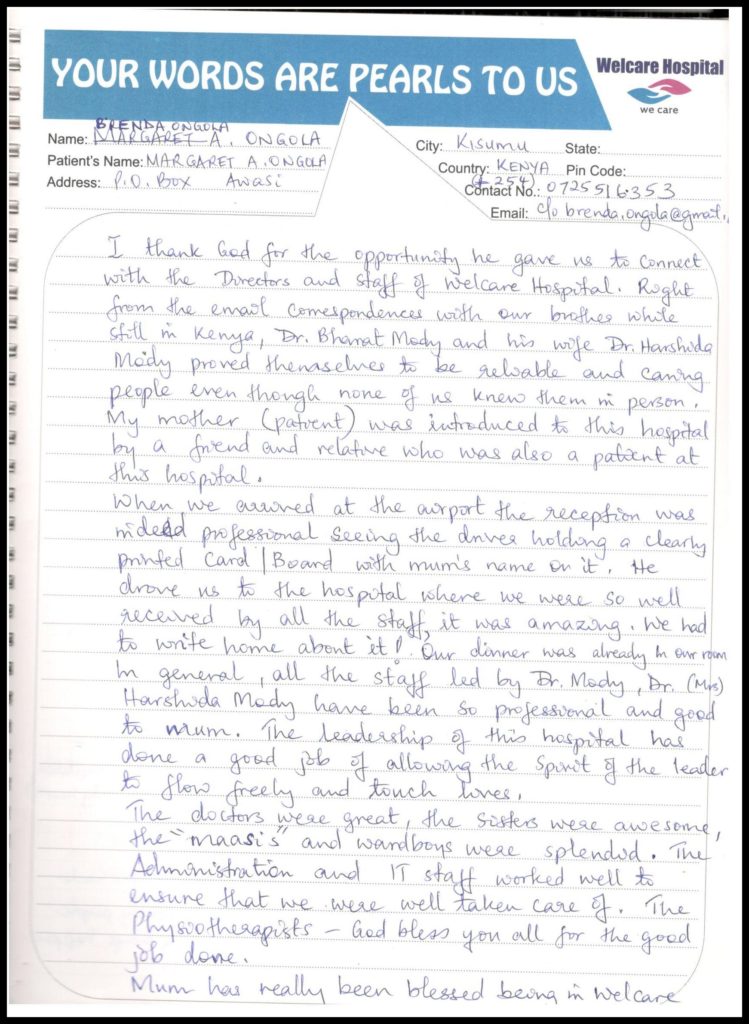 YOUR WORDS ARE PEARLS TO US
Welcare Hospital
we care
BRENDA ONGOLA
Name: MARGARET A. ONGOLA
Patient's Name: MARGARET A. ONGOLA
Address: P.O. Box Awasi
City: Kisumu State:
Country: KENYA Pin Code:
(+254)
Contact No.: 0725516353
Email: c/o brenda.ongola@gmail.
I thank God for the opportunity he gave us to connect
with the Directors and staff of Welcare Hospital. Right
from the email correspondences with our brother while
still in Kenya, Dr. Bharat Mody and his wife Dr. Harshida
Mody proved themselves to be reliable and caring
people even though none of us knew them in person.
My mother (patient) was introduced to this hospital
by a friend and relative who was also a patient at
this hospital.
When we arrived at the airport the reception was
indeed professional seeing the driver holding a clearly
printed Card / Board with mum's name on it. He
drove us to the hospital where we were so well
received by all the staff, it was amazing. We had
to write home about it! Our dinner was already in our room
In general, all the staff led by Dr. Mody, Dr. (Mrs)
Harshida Mody have been so professional and good
to mum. The leadership of this hospital has
done a good job of allowing the spirit of the leader
to flow freely and touch lives.
The doctors were great, the sisters were awesome,
the "maasi's" and wardboys were splendid. The
Administration and IT staff worked well to
ensure that we were well taken care of. The
Physiotherapists – God bless you all for the good
job done.
Mum has really been blessed being in Welcare